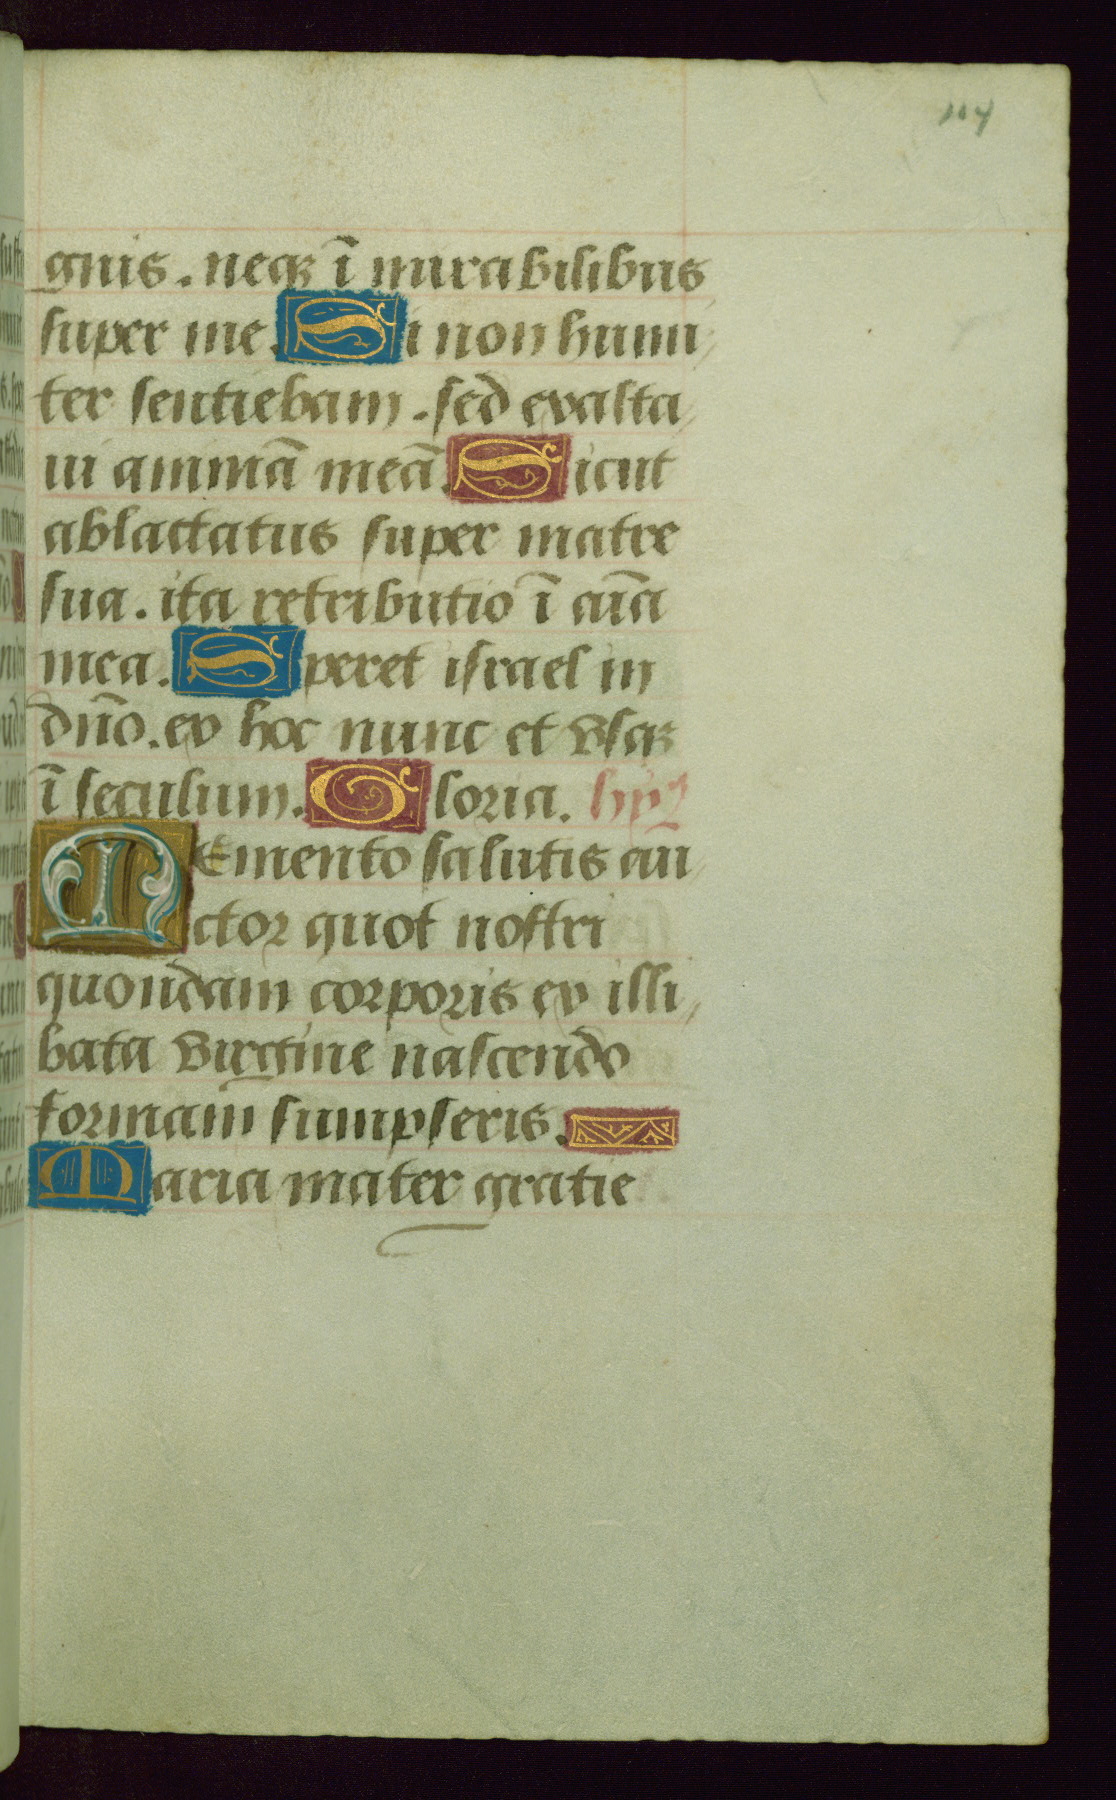 gnis. neqꝫ ī mirabilibus
super me. Si non humi
ter sentiebam. sed exalta
ui animā meā. Sicut
ablactatus super matre
sua. ita retributio ī aīa
mea. Speret israel in
dño. ex hoc nunc et vsqꝫ
ī seculum. Gloria.
Memento salutis au
ctor quot nostri
quondam corporis ex illi
bata virgine nascendo
formam sumpseris.
Maria mater gratie